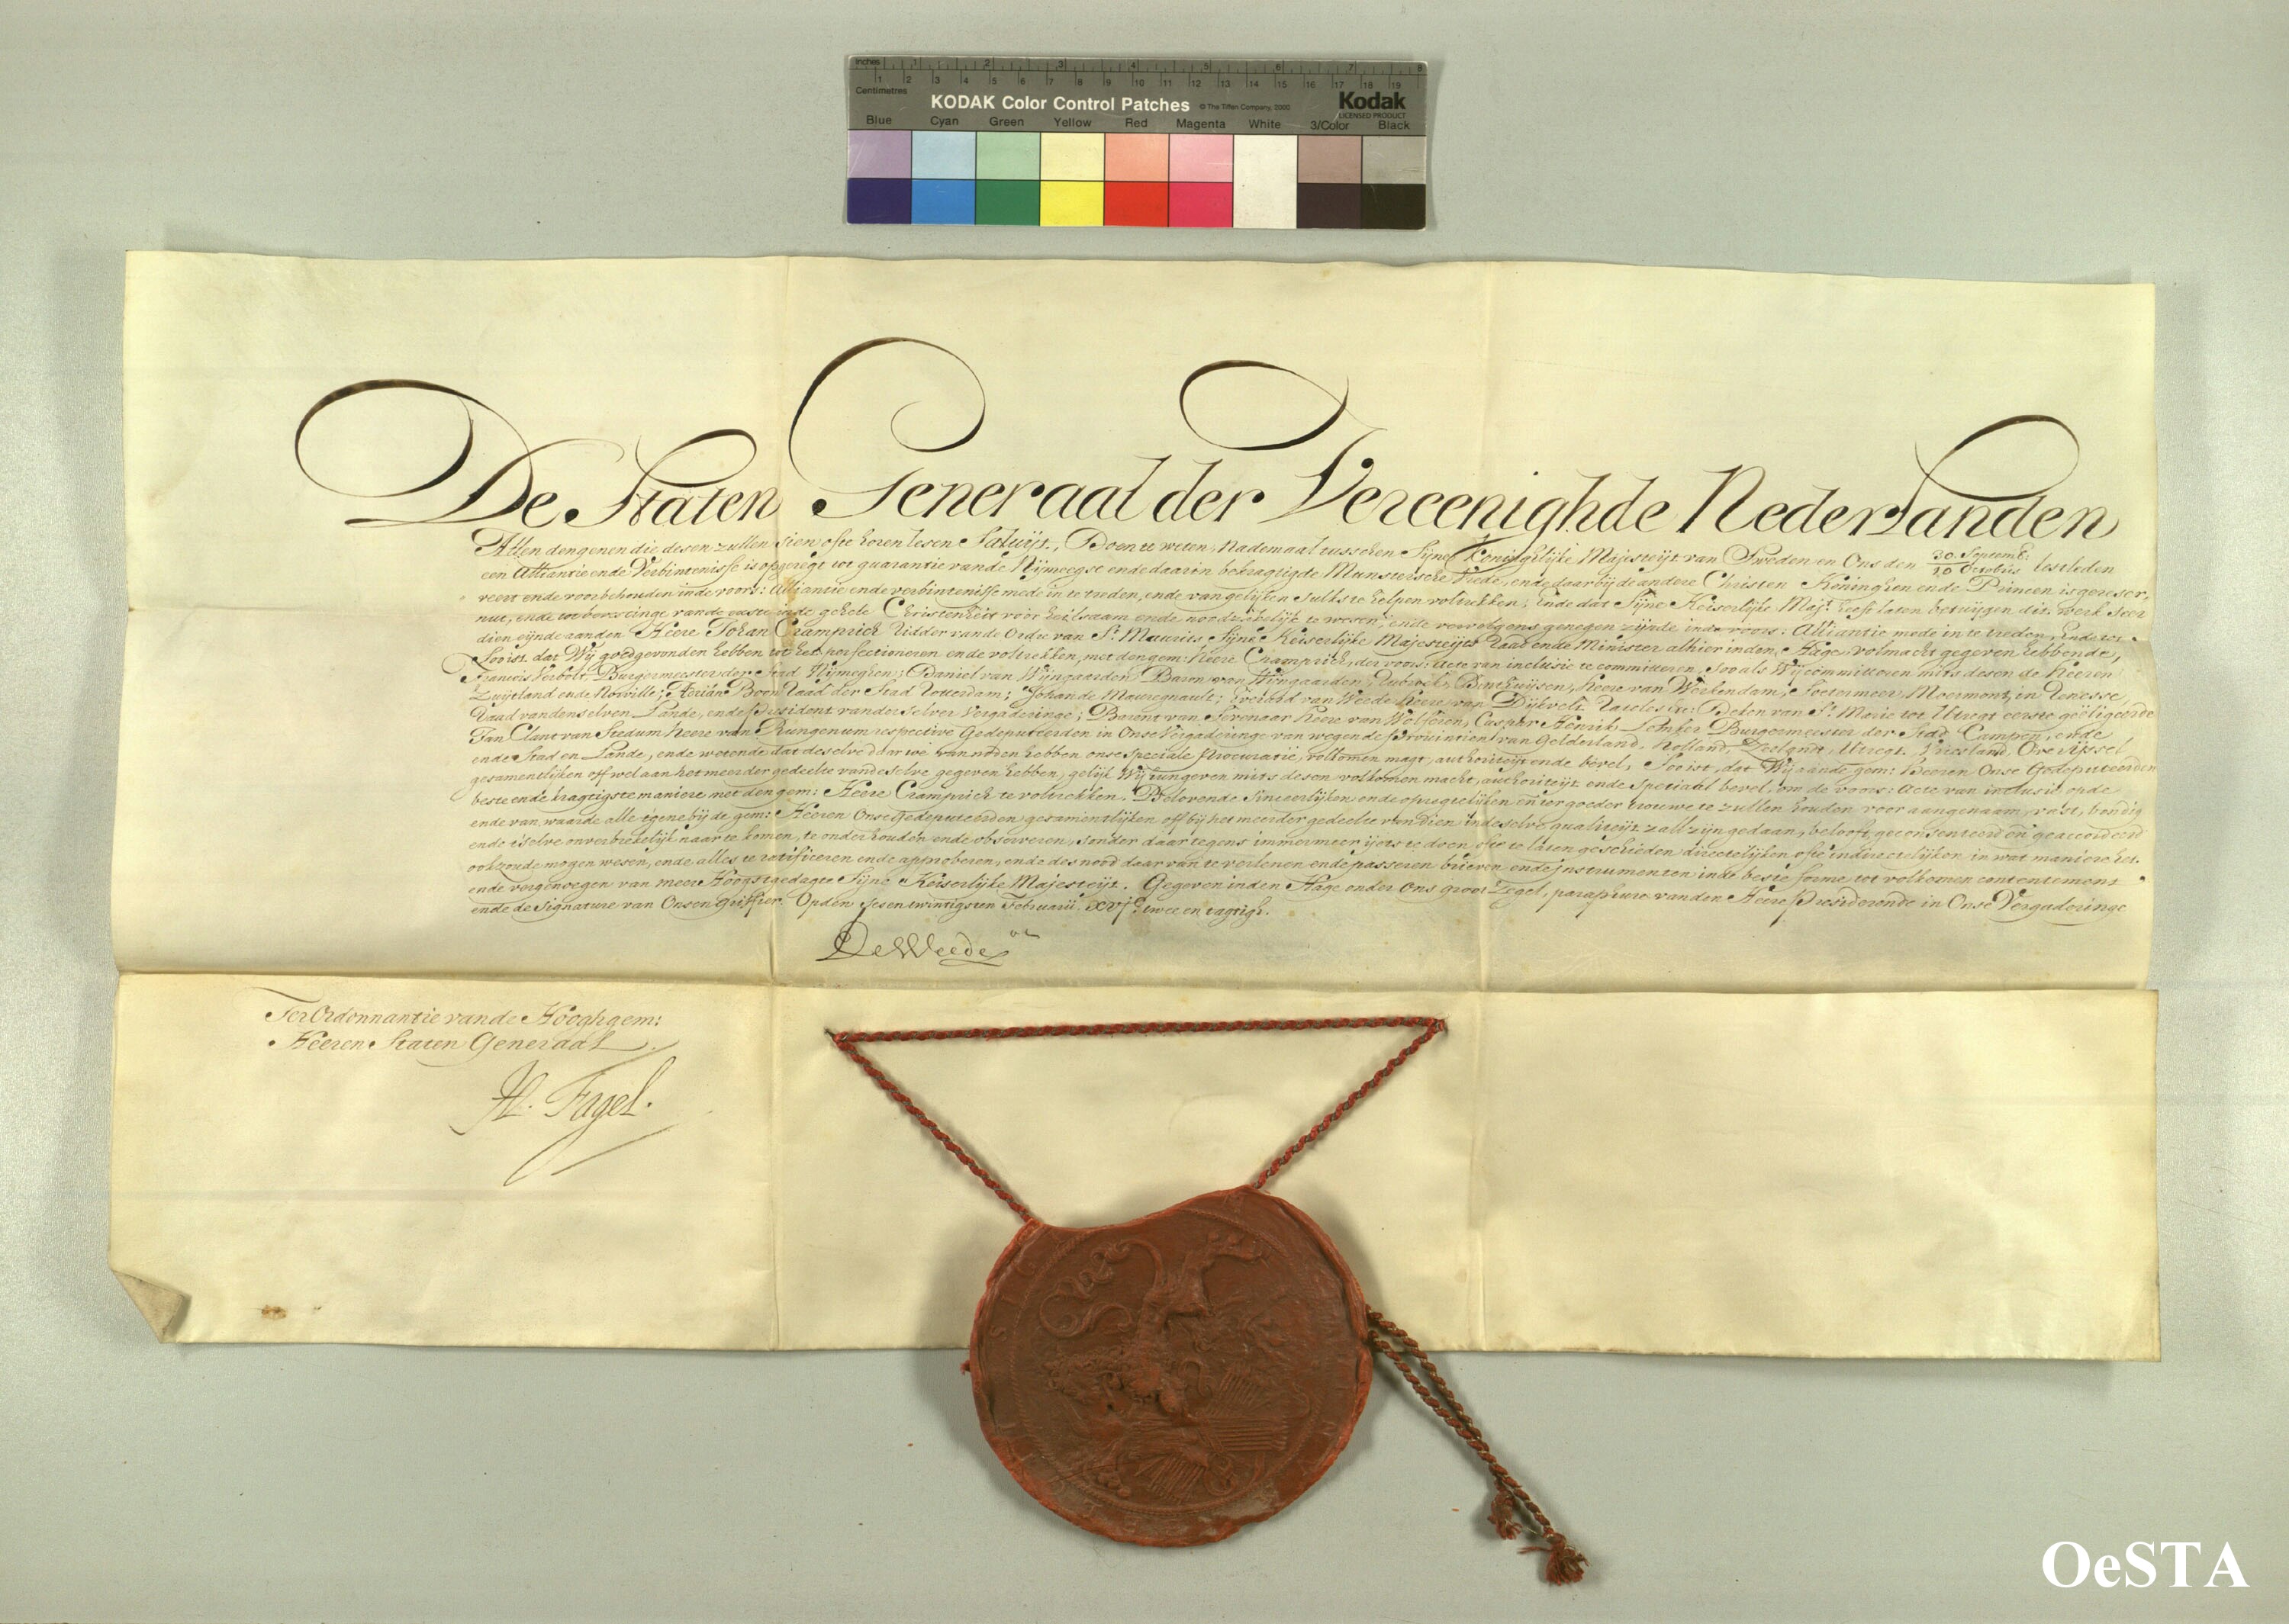 inches 1 2 3 4 5 6 7 8
Centimetres 1 2 3 4 5 6 7 8 9 10 11 12 13 14 15 16 17 18 19
KODAK Color Control Patches © The Tiffen Company, 2000 Kodak
LICENSED PRODUCT
Blue Cyan Green Yellow Red Magenta White 3/Color Black
De Staten Generaal der Vereenighde Nederlanden
Allen den genen die desen zullen sien ofte horen lesen Saluijt, Doen te weten, Nademaal tusschen Sijne Koninghlijke Majesteijt van Sweden en Ons den 30 Septemb: / 10 Octobris lestleden
een Alliantie ende Verbintenisse is opgeregt tot guarantie vande Nijmeegse ende daarin bekragtigde Munstersche Vrede, ende daar bij de andere Christen Koninghen ende Princen is gereser,
veert ende voorbehouden inde voors: Alliantie ende verbintenisse mede in te treden, ende van gelijken sulks te helpen voltrekken; Ende dat Sijne Keiserlijke Maj.t heeft laten betuijgen dit werk seer
nut, ende tot bevestinge vande ruste inde gehele Christenheit voor heilsaam ende nootsakelijk te wesen, ende vervolgens genegen zijnde inde voors: Alliantie mede in te treden, Ende tot
dien eijnde aanden Heere Johan Cramprich Ridder vande Ordre van S.t Maurits Sijne Keiserlijke Majesteijts Raad ende Minister alhier inden Hage, volmacht gegeven hebbende,
Soo ist dat Wij goedgevonden hebben tot het perfectioneren ende voltrekken, met den gem: Heere Cramprich, der voors: Acte van inclusie te committeren, soo als Wij committeren mits desen de Heeren
Francois Verbolt, Burgermeester der Stad Nijmeghen; Daniel van Wijngaerden, Baron van Wijngaarden, Heere van Werkendam, Soetermeer, Moermont, in Renesse,
Zuijtland ende Norville; Adriaan Boon Raad der Stad Rotterdam; Johan de Mauregnault; Everard van Weede Heere van Dijkvelt, Rateles &c: Deken van S.t Marie tot Utregt eerste geëligeerde
Raad vanden selven Lande, ende President vander selver Vergaderinge; Barent van Heere van Casper Henrik Lemker Burgermeester der Stad Campen, ende
Jan Clant van Stedum Heere van respective Gedeputeerden in Onse Vergaderinge van wegende provintien van Gelderland, Holland, Zeelandt, Utregt, Vriesland, Overijssel
ende Stad en Lande, ende wetende dat deselve daar toe van noden hebben onse speciale procuratie, volkomen magt, authoriteijt ende bevel, Soo ist, dat Wij aande gem: Heeren Onse Gedeputeerden
gesamentlijken off wel aan het meerder gedeelte vande selve gegeven hebben, gelijk Wij hun geven mits desen volkomen macht, authoriteijt ende Spetiaal bevel, om de voors: Acte van inclusie op de
beste ende kragtigste maniere met den gem: Heere Cramprich te voltrekken, Belovende sincerlijken ende opregtelijken en ter goeder trouwe te zullen houden voor aangenaam, vast, bondig
ende van waarde alle 'tgene bij de gem: Heeren Onse Gedeputeerden gesamentlijken off bij het meerder gedeelte van dien inde selve qualiteijt zall zijn gedaan, belooft, geconsenteerd en geaccordeerd
ende 'tselve onverbrekelijk naar te komen, te onderhouden ende observeren, sonder daar tegens immermeer ijets te doen ofte te laten geschieden directelijken ofte indirectelijken, in wat maniere het
ook zoude mogen wesen, ende alles te ratificeren ende approberen, ende des nood daar van te verlenen ende passeren brieven ende instrumenten inde beste forme tot volkomen contentement
ende vergenoegen van meer Hoogstgedagte Sijne Keiserlijke Majesteijt. Gegeven inden Hage onder Ons groot Zegel, paraphure vanden Heere Presiderende in Onse Vergaderinge
ende de Signature van Onsen Griffier. Op den sesentwintigsten Februarii XVJ.c twee en tagtigh.
De Weede
Ter Ordonnantie vande Hooghgem:
Heeren Staten Generaal
H. Fagel.
OeSTA